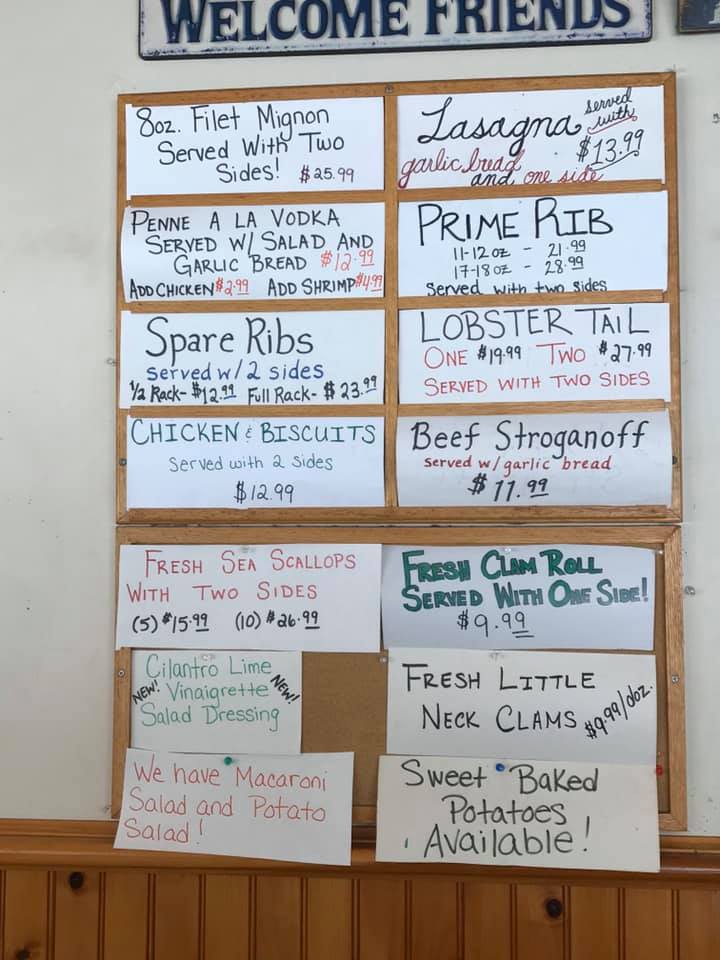 WELCOME FRIENDS
8oz. Filet Mignon
Served With Two
Sides! $25.99
Lasagna served with
garlic bread $13.99
and one side
PENNE A LA VODKA
SERVED W/ SALAD AND
GARLIC BREAD $12.99
ADD CHICKEN $2.99 ADD SHRIMP $4.99
PRIME RIB
11-12oz - 21.99
17-18oz - 28.99
Served with two sides
Spare Ribs
served w/ 2 sides
1/2 Rack- $12.99 Full Rack- $23.99
LOBSTER TAIL
ONE $19.99 TWO $27.99
SERVED WITH TWO SIDES
CHICKEN & BISCUITS
Served with 2 sides
$12.99
Beef Stroganoff
served w/ garlic bread
$11.99
FRESH SEA SCALLOPS
WITH TWO SIDES
(5) $15.99 (10) $26.99
FRESH CLAM ROLL
SERVED WITH ONE SIDE!
$9.99
Cilantro Lime
NEW! Vinaigrette NEW!
Salad Dressing
FRESH LITTLE
NECK CLAMS $9.99/doz.
We have Macaroni
Salad and Potato
Salad!
Sweet Baked
Potatoes
Available!